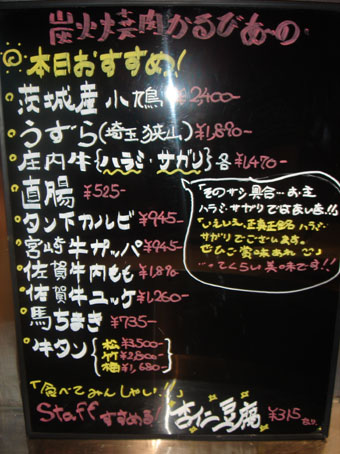 炭火焼肉かるびあーの
本日おすすめ!
茨城産小鳩 ¥2400-
うずら(埼玉狭山)¥1,890-
庄内牛{ハラミ・サガリ}各¥1,470-
直腸 ¥525-
タン下カルビ ¥945-
宮崎牛ガッパ ¥945-
佐賀牛内もも ¥1,890-
佐賀牛ユッケ ¥1,260-
馬ちまき ¥735-
牛タン
松 ¥3,500-
竹 ¥2,800-
梅 ¥1,680-
「このサシ具合…お主
ハラミ・サガリではあるまい!!
「いえいえ、正真正銘ハラミ・
サガリでございます。
ぜひご賞味あれ
…ってくらい美味です!!
「食べてみんしゃい!!」
Staffすすめる! 杏仁豆腐 ¥315